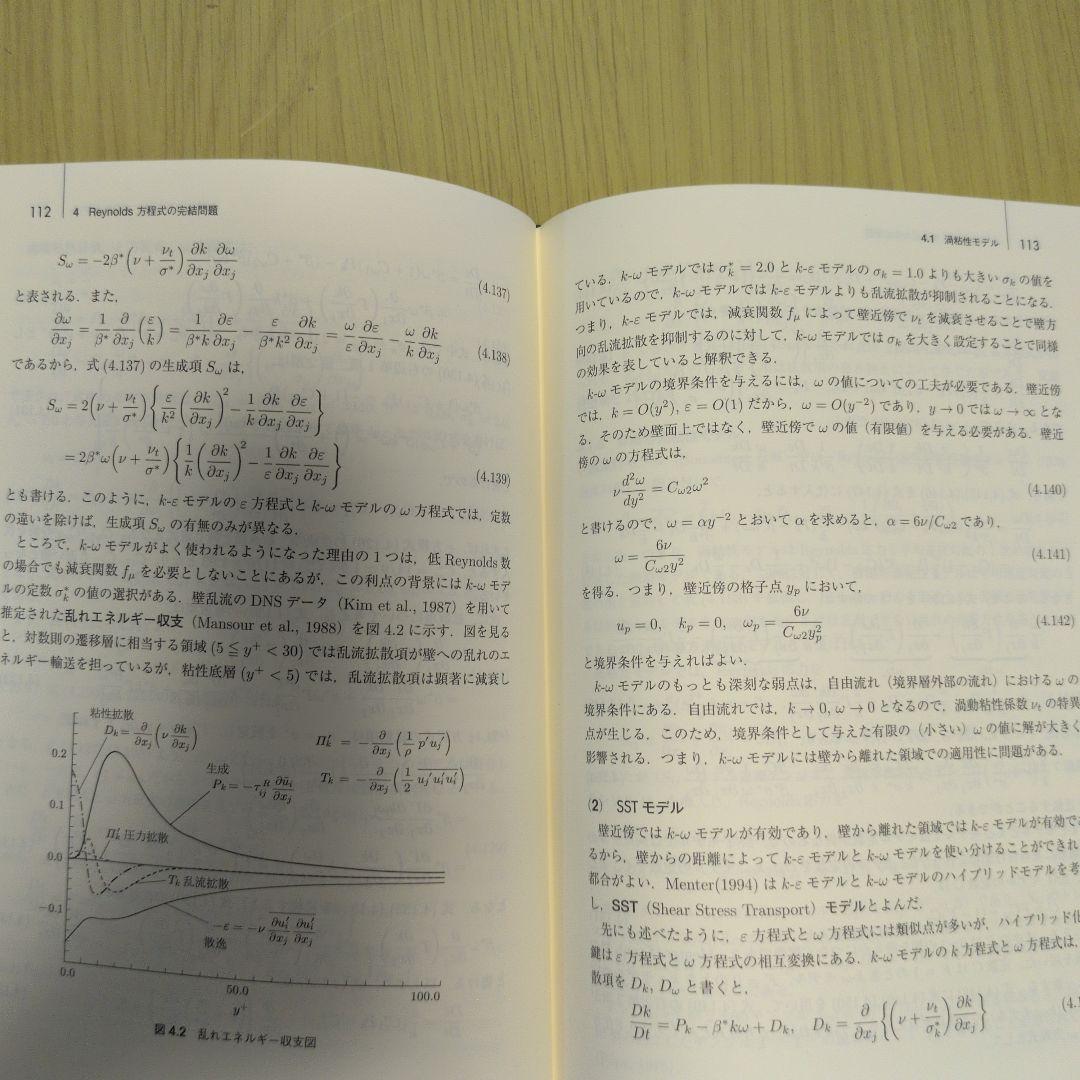 112 4 Reynolds 方程式の完結問題
S_ω = −2β*(ν + ν_t/σ*) ∂k/∂x_j ∂ω/∂x_j (4.137)
と表される．また，
∂ω/∂x_j = 1/β* ∂/∂x_j (ε/k) = 1/(β*k) ∂ε/∂x_j − ε/(β*k²) ∂k/∂x_j = ω/ε ∂ε/∂x_j − ω/k ∂k/∂x_j (4.138)
であるから，式 (4.137) の生成項 S_ω は，
S_ω = 2(ν + ν_t/σ*) {ε/k² (∂k/∂x_j)² − 1/k ∂k/∂x_j ∂ε/∂x_j}
= 2β*ω(ν + ν_t/σ*) {1/k (∂k/∂x_j)² − 1/ε ∂k/∂x_j ∂ε/∂x_j} (4.139)
とも書ける．このように，k-ε モデルの ε 方程式と k-ω モデルの ω 方程式では，定数
の違いを除けば，生成項 S_ω の有無のみが異なる．
ところで，k-ω モデルがよく使われるようになった理由の 1 つは，低 Reynolds 数
の場合でも減衰関数 f_μ を必要としないことにあるが，この利点の背景には k-ω モデ
ルの定数 σ*_k の値の選択がある．壁乱流の DNS データ（Kim et al., 1987）を用いて
推定された乱れエネルギー収支（Mansour et al., 1988）を図 4.2 に示す．図を見る
と，対数則の遷移層に相当する領域 (5 ≦ y⁺ < 30) では乱流拡散項が壁への乱れのエ
ネルギー輸送を担っているが，粘性底層 (y⁺ < 5) では，乱流拡散項は顕著に減衰し
粘性拡散
D_k = ∂/∂x_j (ν ∂k/∂x_j)
Π′_k = −∂/∂x_j (1/ρ p′u_j′)
生成
P_k = −τ_ij^R ∂ū_i/∂x_j
T_k = −∂/∂x_j (1/2 u_j′u_i′u_i′)
0.2
0.1
Π′_k 圧力拡散
0.0
T_k 乱流拡散
−0.1
−ε = −ν ∂u_i′/∂x_j ∂u_i′/∂x_j
散逸
0.0 50.0 100.0
y⁺
図 4.2 乱れエネルギー収支図
4.1 渦粘性モデル 113
ている．k-ω モデルでは σ*_k = 2.0 と k-ε モデルの σ_k = 1.0 よりも大きい σ_k の値を
用いているので，k-ω モデルでは k-ε モデルよりも乱流拡散が抑制されることになる．
つまり，k-ε モデルでは，減衰関数 f_μ によって壁近傍で ν_t を減衰させることで壁方
向の乱流拡散を抑制するのに対して，k-ω モデルでは σ_k を大きく設定することで同様
の効果を表していると解釈できる．
k-ω モデルの境界条件を与えるには，ω の値についての工夫が必要である．壁近傍
では，k = O(y²), ε = O(1) だから，ω = O(y⁻²) であり，y → 0 では ω → ∞ とな
る．そのため壁面上ではなく，壁近傍で ω の値（有限値）を与える必要がある．壁近
傍の ω の方程式は，
ν d²ω/dy² = C_ω2 ω² (4.140)
と書けるので，ω = αy⁻² とおいて α を求めると，α = 6ν/C_ω2 であり，
ω = 6ν/(C_ω2 y²) (4.141)
を得る．つまり，壁近傍の格子点 y_p において，
u_p = 0, k_p = 0, ω_p = 6ν/(C_ω2 y_p²) (4.142)
と境界条件を与えればよい．
k-ω モデルのもっとも深刻な弱点は，自由流れ（境界層外部の流れ）における ω の
境界条件にある．自由流れでは，k → 0, ω → 0 となるので，渦動粘性係数 ν_t の特異
点が生じる．このため，境界条件として与えた有限の（小さい）ω の値に解が大きく
影響される．つまり，k-ω モデルには壁から離れた領域での適用性に問題がある．
(2) SST モデル
壁近傍では k-ω モデルが有効であり，壁から離れた領域では k-ε モデルが有効であ
るから，壁からの距離によって k-ε モデルと k-ω モデルを使い分けることができれ
都合がよい．Menter(1994) は k-ε モデルと k-ω モデルのハイブリッドモデルを考
し，SST（Shear Stress Transport）モデルとよんだ．
先にも述べたように，ε 方程式と ω 方程式には類似点が多いが，ハイブリッド化
鍵は ε 方程式と ω 方程式の相互変換にある．k-ω モデルの k 方程式と ω 方程式は，
散項を D_k, D_ω と書くと，
Dk/Dt = P_k − β*kω + D_k, D_k = ∂/∂x_j {(ν + ν_t/σ*_k) ∂k/∂x_j} (4.1